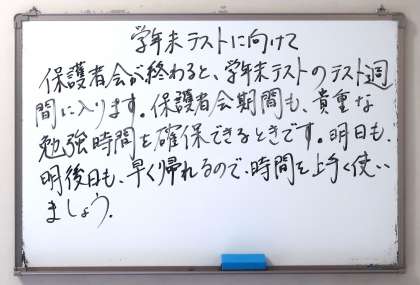 学年末テストに向けて
保護者会が終わると、学年末テストのテスト週
間に入ります。保護者会期間も、貴重な
勉強時間を確保できるときです。明日も、
明後日も、早く帰れるので、時間を上手く使い
ましょう.